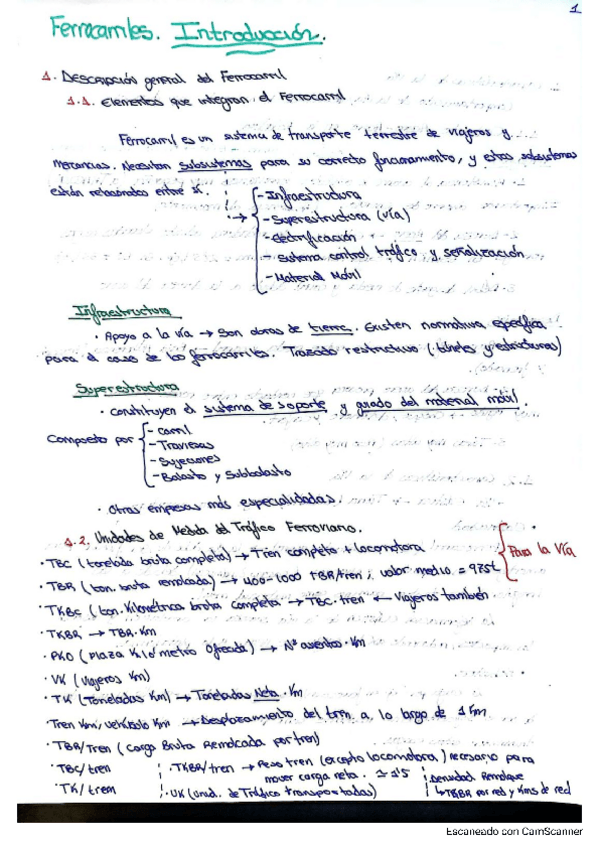 1
Ferrocarriles. Introducción.
1. Descripción general del Ferrocarril
1.1. Elementos que integran el Ferrocarril
Ferrocarril es un sistema de transporte terrestre de viajeros y
mercancías. Necesitan subsistemas para su correcto funcionamiento, y estos subsistemas
están relacionados entre sí.
- Infraestructura
- Superestructura (vía)
- Electrificación
- Sistema control tráfico y señalización
- Material Móvil
Infraestructura
· Apoyo a la vía → Son obras de tierra. Existen normativa específica
para el caso de los ferrocarriles. Trazado restrictivo (túneles y estructuras)
Superestructura
· Constituyen el sistema de soporte y guiado del material móvil.
Compuesto por
- Carril
- Traviesas
- Sujeciones
- Balasto y Subbalasto
· Otras empresas más especializadas.
1.2. Unidades de Medida del Tráfico Ferroviario.
· TBC (tonelada bruta completa) → Tren completo + locomotora
Para la Vía
· TBR (ton. bruta remolcada) → 400-1000 TBR/tren; valor medio = 975t
· TKBC (ton. Kilométrica bruta completa → TBC·tren ← Viajeros también
· TKBR → TBR·Km
· PKO (Plaza Kilómetro Ofrecida) → Nº asientos·Km
· VK (viajeros Km)
· TK (Toneladas Km) → Toneladas Neta·Km
· Tren Km, vehículo Km → Desplazamiento del tren a lo largo de 1 Km
· TBR/Tren (Carga Bruta Remolcada por tren)
· TBC/tren
· TK/tren
· TKBR/tren → Peso tren (excepto locomotora) necesario para
mover carga neta. ≃ 1'5
· UK (Unid. de Tráfico transportadas)
Densidad Remolque
↳ TKBR por red y Kms de red
Escaneado con CamScanner